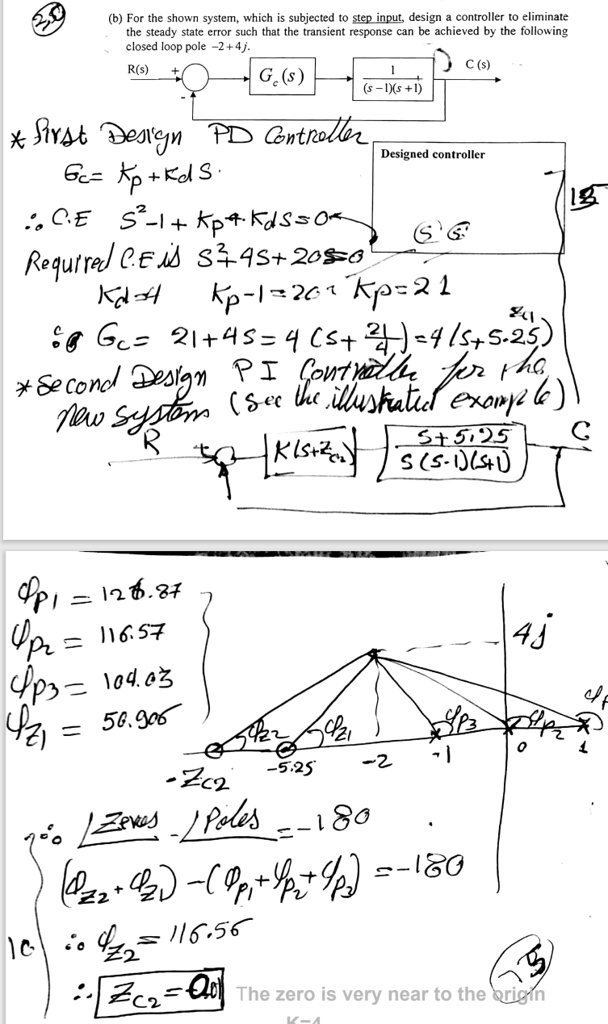 2,5
(b) For the shown system, which is subjected to step input, design a controller to eliminate
the steady state error such that the transient response can be achieved by the following
closed loop pole −2+4j.
R(s) + - G_c(s) 1/((s−1)(s+1)) C (s)
* First Design PD Controller
Designed controller
Gc= Kp+Kd S.
∴ C.E S²-1+ Kp+KdS=0
Required C.E is S²+4S+20=0
Kd=4 Kp-1=20, Kp=21
∴ Gc= 21+4S=4(S+21/4)=4(S+5.25)
Zc1
* Second Design PI Controller for the
new system (see the illustrated example)
R + K(S+Zc2) (S+5.25)/(S(S-1)(S+1)) C
φp1 = 126.87
φp2 = 116.57
φp3 = 104.03
φz1 = 50.906
4j
φz2 φz1 φp3 φp2
-Zc2 -5.25 -2 -1 0 1
∴ ∠Zeros - ∠Poles = -180
(φz2+φz1)-(φp1+φp2+φp3) = -180
10 ∴ φz2=116.56
∴ Zc2=0.01 The zero is very near to the origin
K=4